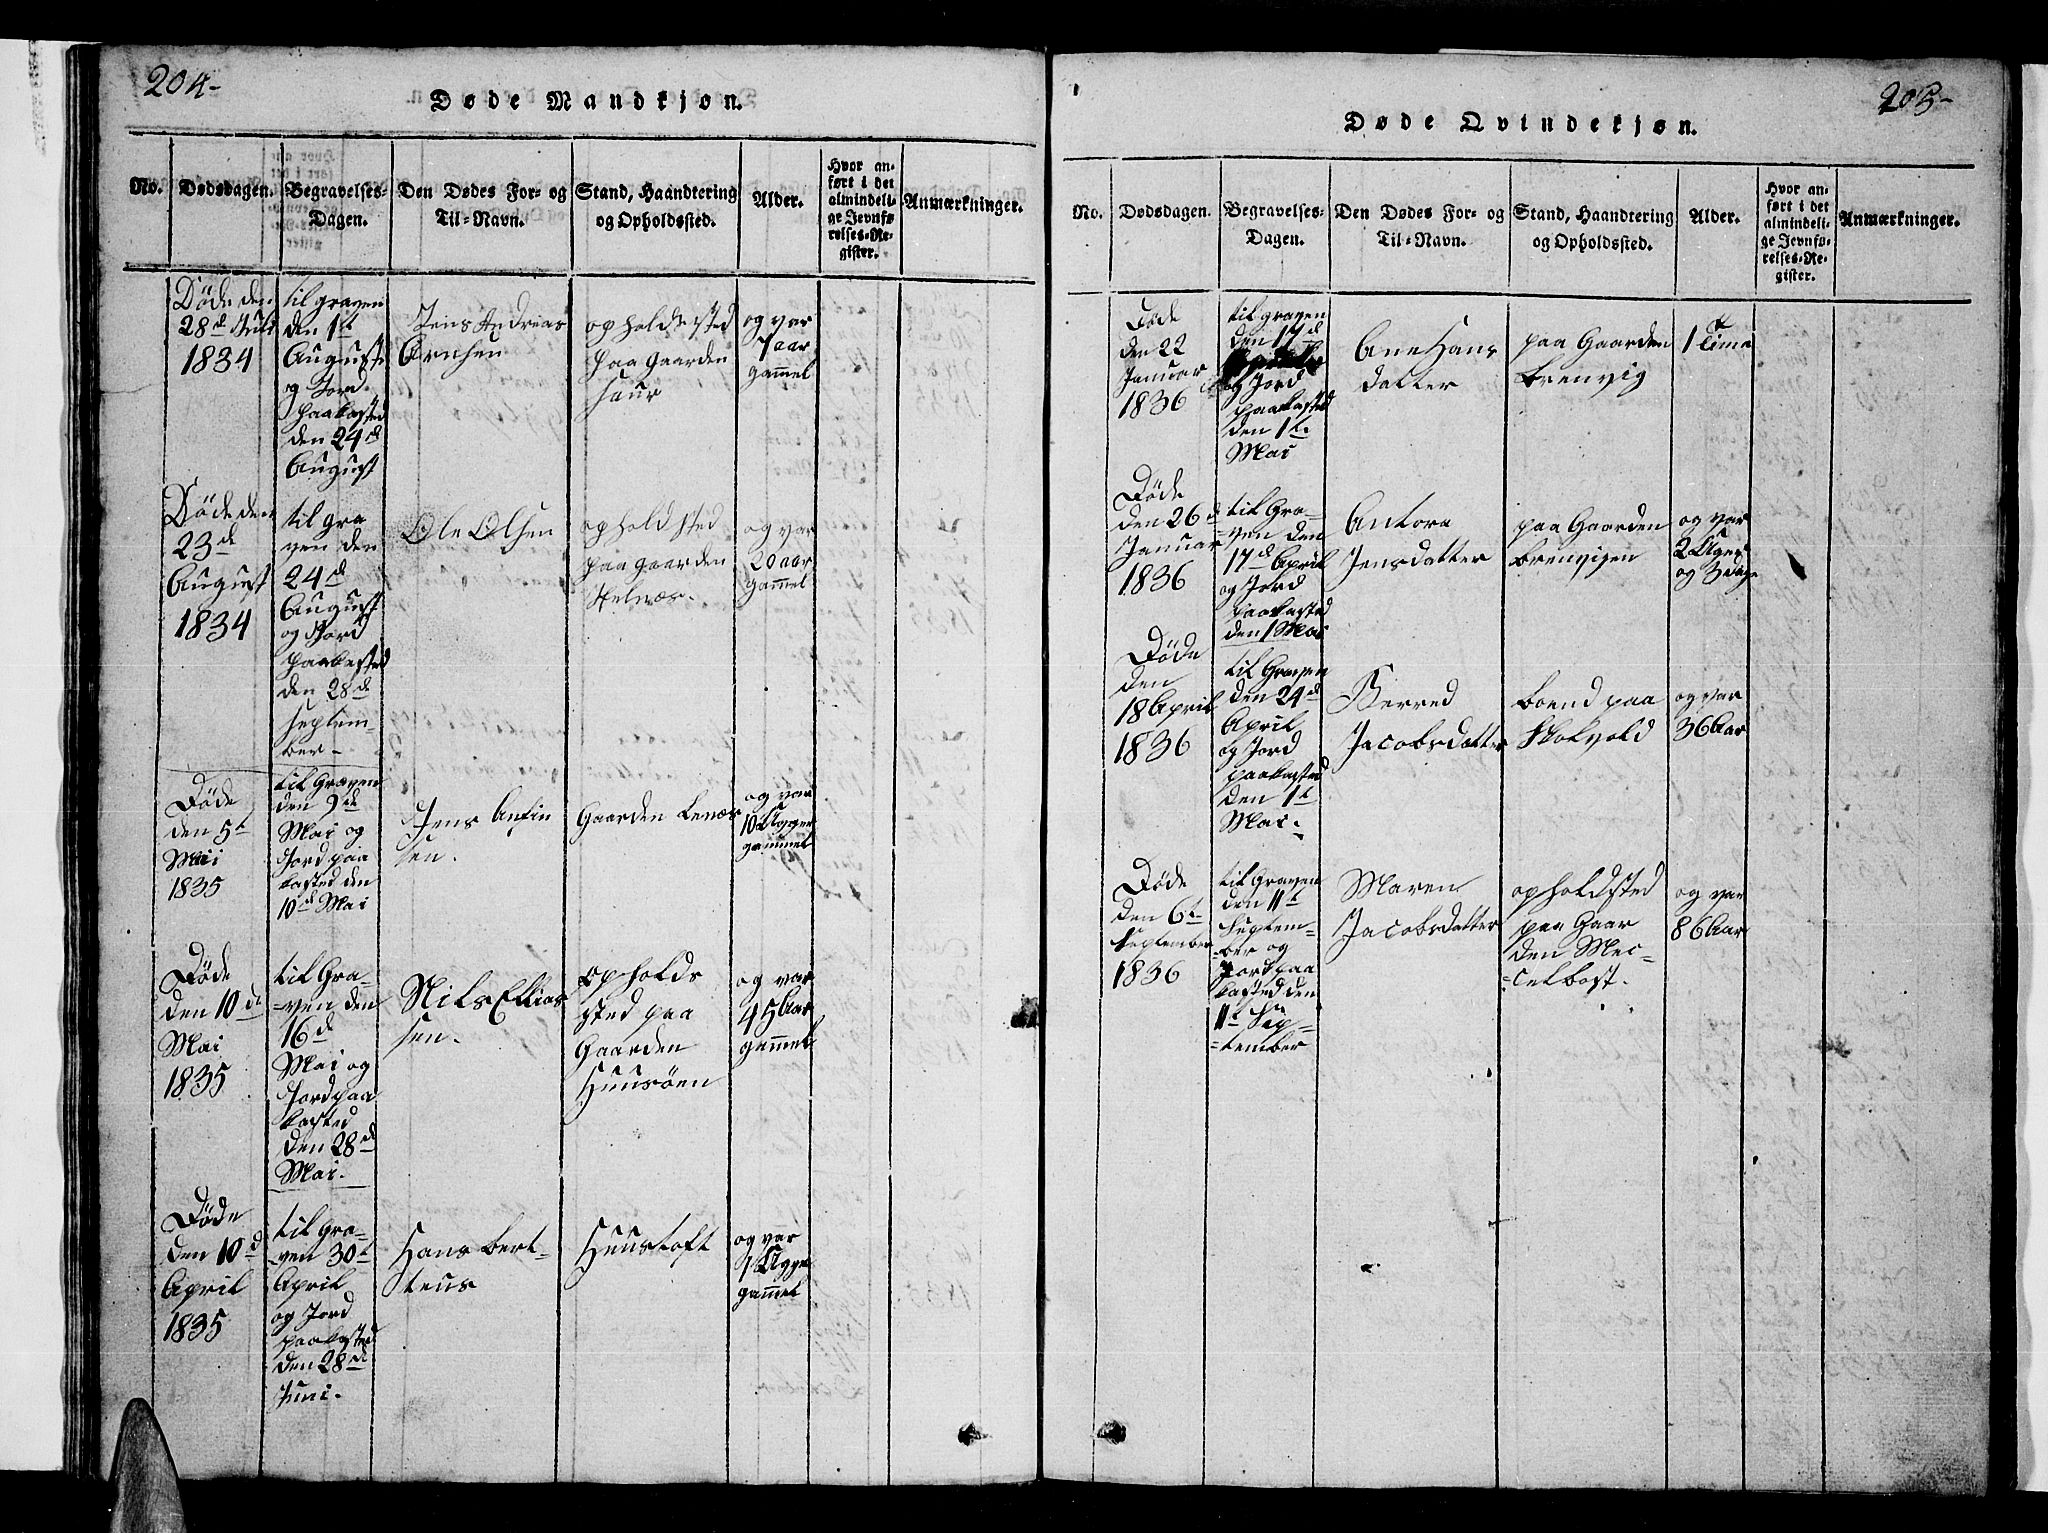 204-
Døde Mandkjøn.
No.
Dødsdagen.
Begravelses-
Dagen.
Den Dødes For- og
Til-Navn.
Stand, Haandtering
og Opholdssted.
Alder.
Hvor an-
ført i det
almindeli-
ge Jevnfø-
relses-Re-
gister.
Anmærkninger.
Døde den
28d Juli
1834
til graven
den 1t
August
og Jord
paakasted
den 24d
August
Jens Andreas
Arnhsen
opholdssted
paa gaarden
og var
7 aar
gammel
Døde den
23d
August
1834
til gra
ven den
24d
August
og Jord
paakasted
den 28d
Septem-
ber-
Ole Olsen
ophold sted
paa gaarden
Stelnæs.
og var
20 aar
gammel
Døde
den 5t
Maii
1835
til Graven
den 9de
Mai og
Jord paa
kasted den
10d Mai
Jens Anfin
sen.
Gaarden Lenæs
og var
10 Ugger
gammel
Døde
den 10de
Mai
1835
til Gra-
-ven den
16d
Mai og
Jord paa
kasted
den 28d
Mai.
Nils Ellias
sen.
opholds
sted paa
Gaarden
Huusøen
og var
45 Aar
gammel
Døde
den 10d
April
1835
til Gra-
-ven 30t
April
og Jord
paakasted
den 28de
Juni.
Hans Bert-
teus
Huustoft
og var
1 Ugge
gammel
205-
Døde Qvindekjøn.
No.
Dødsdagen.
Begravelses-
Dagen.
Den Dødes For- og
Til-Navn.
Stand, Haandtering
og Opholdssted.
Alder.
Hvor an-
ført i det
almindeli-
ge Jevnfø-
relses-Re-
gister.
Anmærkninger.
Døde
den 22
Januar
1836
til graven
den 17d
og Jord
paakasted
den 1t
Mai
Ane Hans
datter
paa Gaarden
Brenvig
1 Tima
Døde
den 26d
Januar
1836
til Gra-
ven den
17d April
og Jord
paakasted
den 1 Mai
Antora
Jensdatter
paa Gaarden
Brenvigen
og var
2 Uger
og 3 dage
Døde
den
18 April
1836
til Graven
den 24d
April
og Jord
paakasted
den 1t
Mai.
Berred
Jacobsdatter
boend paa
Flokvold
og var
36 Aar
Døde
den 6t
September
1836
til Graven
den 11t
Septem-
-ber og
Jord paa
kasted den
11t Sep-
-tember
Maren
Jacobsdatter
opholdsted
paa Gaar
den Mec-
-celbost.
og var
86 Aar